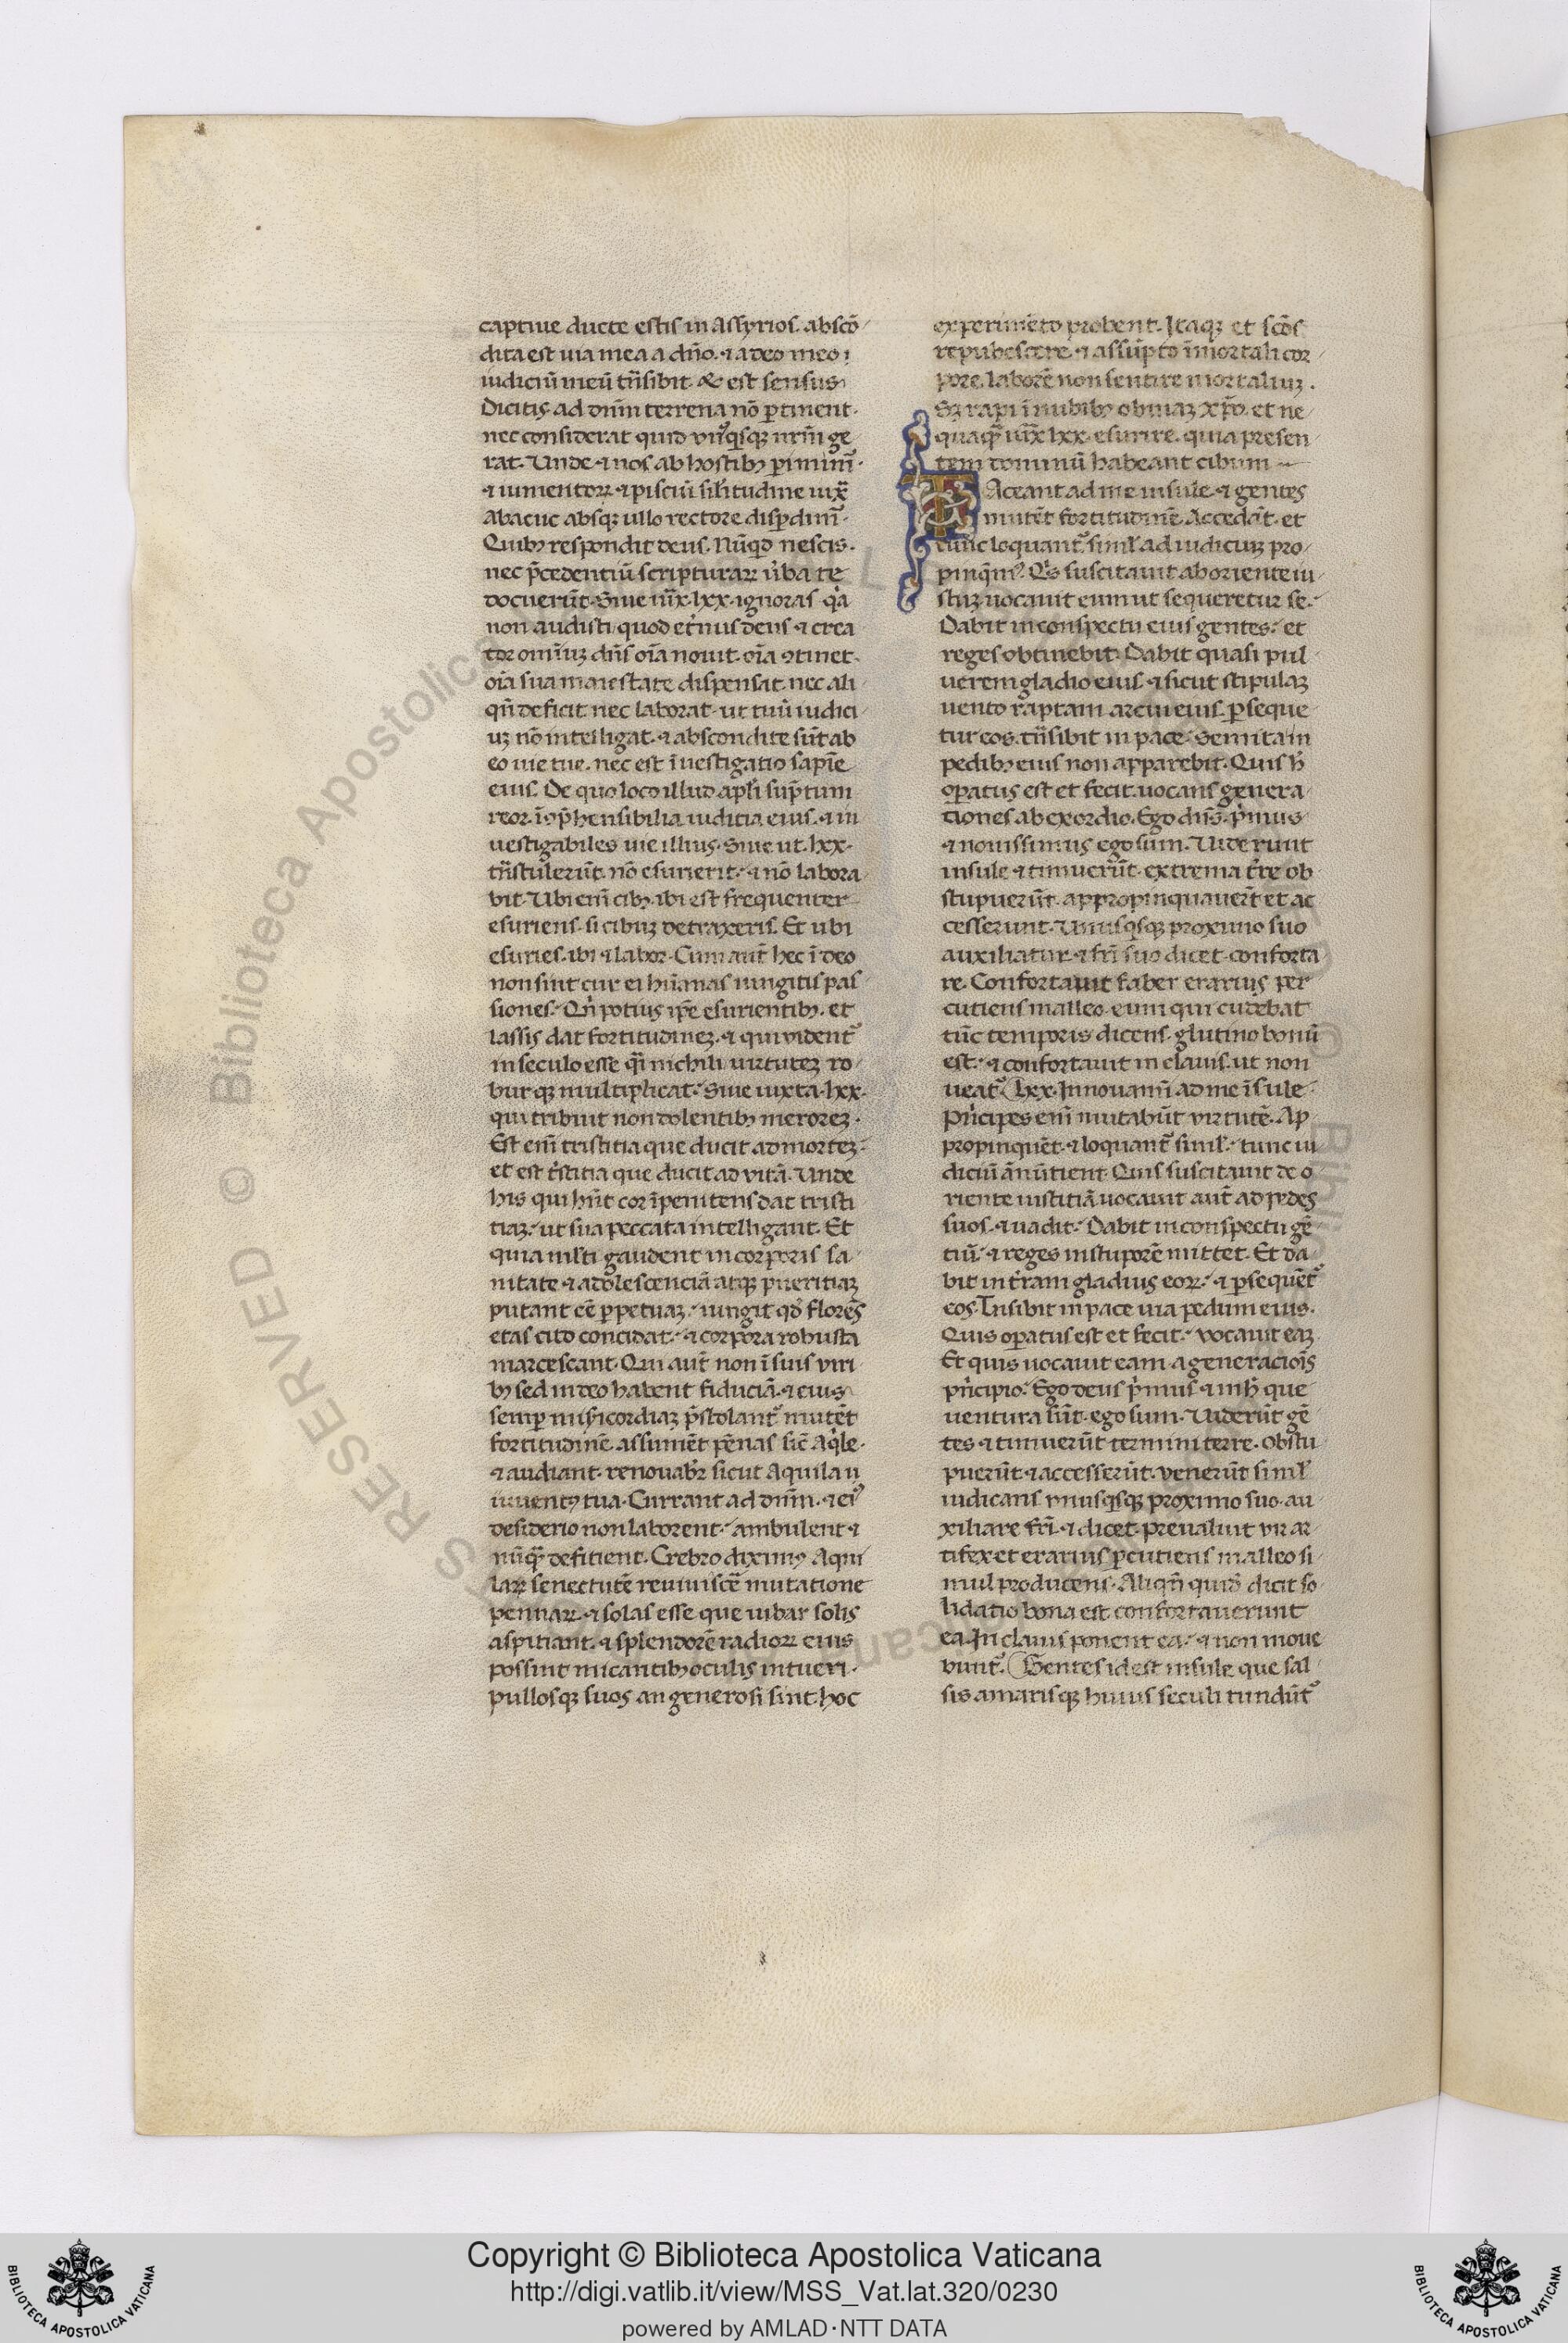 captiue ducte estis in Assyrios. abscō
dita est uia mea a dño. ⁊ a deo meo
iudiciū meū trāsibit. & est sensus
Dicitis ad dnm̄ terrena nō ꝑtinent.
nec considerat quid vnꝰqͥsqꝫ nr̄m ge
rat. Unde ⁊ nos ab hostibꝫ ꝑimim̄.
⁊ iumentoꝝ ⁊ pisciū silitudine iuxͣ
Abacuc absqꝫ ullo rectore disꝑdim̄.
Quibꝫ respondit deus. Nūqͥd nescis.
nec p̄cedentiū scripturaꝝ ūba te
docuerūt. Siue iūx. lxx. ignoras. qͥa
non audisti quod et̄nus deus ⁊ crea
tor omīuꝫ dn̄s oīa nouit. oīa ꝯtinet.
oīa sua maiestate dispensat. nec ali
qn̄ deficit nec laborat. ut tuū iudici
uꝫ nō intelligat. ⁊ abscondite sūt ab
eo uie tue. nec est īuestigatio sapīe
eius. De quo loco illud apl̄i sūptum
reor. īꝯp̄hensibilia iudicia eius. ⁊ in
uestigabiles uie illius. Siue ut. lxx.
trāstulerūt. nō esurierit. ⁊ nō labora
bit. Ubi eni᷒ cibꝫ. ibi est frequenter
esuriens. si cibuꝫ detraxeris. Et ubi
esuries. ibi ⁊ labor. Cum aut̄ hec ī deo
non sint cur ei hūanas iungitis pas
siones. Qn̄ potius ip̄e esurientibꝫ. et
lassis dat fortitudineꝫ. ⁊ qui vident᷑
in seculo esse qͣi nichili virtuteꝫ ro
bur qꝫ multiplicat. Siue iuxta. lxx.
qui tribuit non dolentibꝫ meroreꝫ.
Est eni᷒ tristitia que ducit ad morteꝫ.
et est tͥstitia que ducit ad vitā. Unde
his qui hn̄t cor īpenitens dat tristi
tiaꝫ. ut sua peccata intelligant. Et
quia iusti gaudent in corporis sa
nitate. ⁊ adolescenciā atqꝫ pueritiaꝫ
putant eē ꝑpetuaꝫ. iungit qd̄ florēs
etas cito concidat. ⁊ corpora robusta
marcescant. Qui aut̄ non ī suis viri
bꝫ sed in deo habent fiduciā. ⁊ eius
semꝑ mis̄icordiaꝫ p̄stolant᷑ mutēt
fortitudinē. assumēt pēnas sic̄ Aqͥle.
⁊ audiant. renouabr̄ sicut Aquila u
iuuentꝫ tua. Currant ad dnm̄. ⁊ eiꝰ
desiderio non laborent. ambulent ⁊
nūqͣ defitient. Crebro diximꝫ Aqui
laꝝ senectutē reuiuiscē mutatione
pennaꝝ. ⁊ solas esse que iubar solis
aspitiant. ⁊ splendorē radioꝝ eius
possint micantibꝫ oculis intueri.
pullosqꝫ suos an generosi sint. hoc
experimēto probent. Itaqꝫ et sc̄os
repubescere. ⁊ assūpto īmortali cor
pore. laborē non sentire mortaliuꝫ.
Sꝫ rapi ī nubibꝫ obuiaꝫ xp̄o. et ne
quaqͣ iūx lxx. esurire. quia presen
tem dominū habeant cibum
TAceant ad me insule. ⁊ gentes
mutēt fortitudinē. Accedāt. et
tunc loquant᷑. simͥl ad iudiciuꝫ pro
pinqͥmꝰ. Qͥs suscitauit ab oriente iu
stuꝫ. uocauit eum ut sequeretur se.
Dabit in conspectu eius gentes. et
reges obtinebit. Dabit quasi pul
uerem gladio eius. ⁊ sicut stipulaꝫ
uento raptam arcui eius. ꝑseque
tur eos. trāsibit in pace. Semita in
pedibꝫ eius non apparebit. Quis h̄
oꝑatus est et fecit. uocans genera
tiones ab exordio. Ego dn̄s. pͥmus
⁊ nouissimus ego sum. Uiderunt
insule ⁊ timuerūt. extrema t̄re ob
stupuerūt. appropinquauer̄t et ac
cesserunt. Unusqͥsqꝫ proximo suo
auxiliatur. ⁊ fr̄i suo dicet. conforta
re. Confortauit faber erarius per
cutiens malleo. eum qui cudebat
tūc temporis dicens. glutino bonū
est. ⁊ confortauit in clauis. ut non
ueat᷑. Lxx. Innouamī ad me īsule.
Pn̄cipes eni᷒ mutabūt virtutē. Ap
propinquēt. ⁊ loquant᷑ simͥl. tunc iu
diciū ānūtient. Quis suscitauit de o
riente iustitiā uocauit aut̄ ad pedes
suos. ⁊ uadit. Dabit in conspectu gē
tiū. ⁊ reges in stuporē mittet. Et da
bit in t̄ram gladius eoꝝ. ⁊ ꝑsequēt᷑
eos. Trāsibit in pace uia pedum eius.
Quis oꝑatus est et fecit. vocauit eaꝫ
Et quis uocauit eam. a generacioīs
pͥncipio. Ego deus pͥmus ⁊ in h̄ que
uentura sūt. ego sum. Uiderūt gē
tes ⁊ timuerūt termini terre. obstu
puerūt. ⁊ accesserūt. venerūt simͥl
iudicans vnusqͥsqꝫ proximo suo. au
xiliare fr̄i. ⁊ dicet. preualuit vir ar
tifex et erarius ꝑcutiens malleo si
mul producens. Aliqn̄ quid̄ dicit so
lidatio bona est. confortauerunt
ea. In clauis ponent ea. ⁊ non moue
bunt᷑. Gentes id est insule. que sal
sis amarisqꝫ huius seculi tundūt᷑
Copyright © Biblioteca Apostolica Vaticana
http://digi.vatlib.it/view/MSS_Vat.lat.320/0230
powered by AMLAD·NTT DATA
BIBLIOTECA APOSTOLICA VATICANA
BIBLIOTECA APOSTOLICA VATICANA